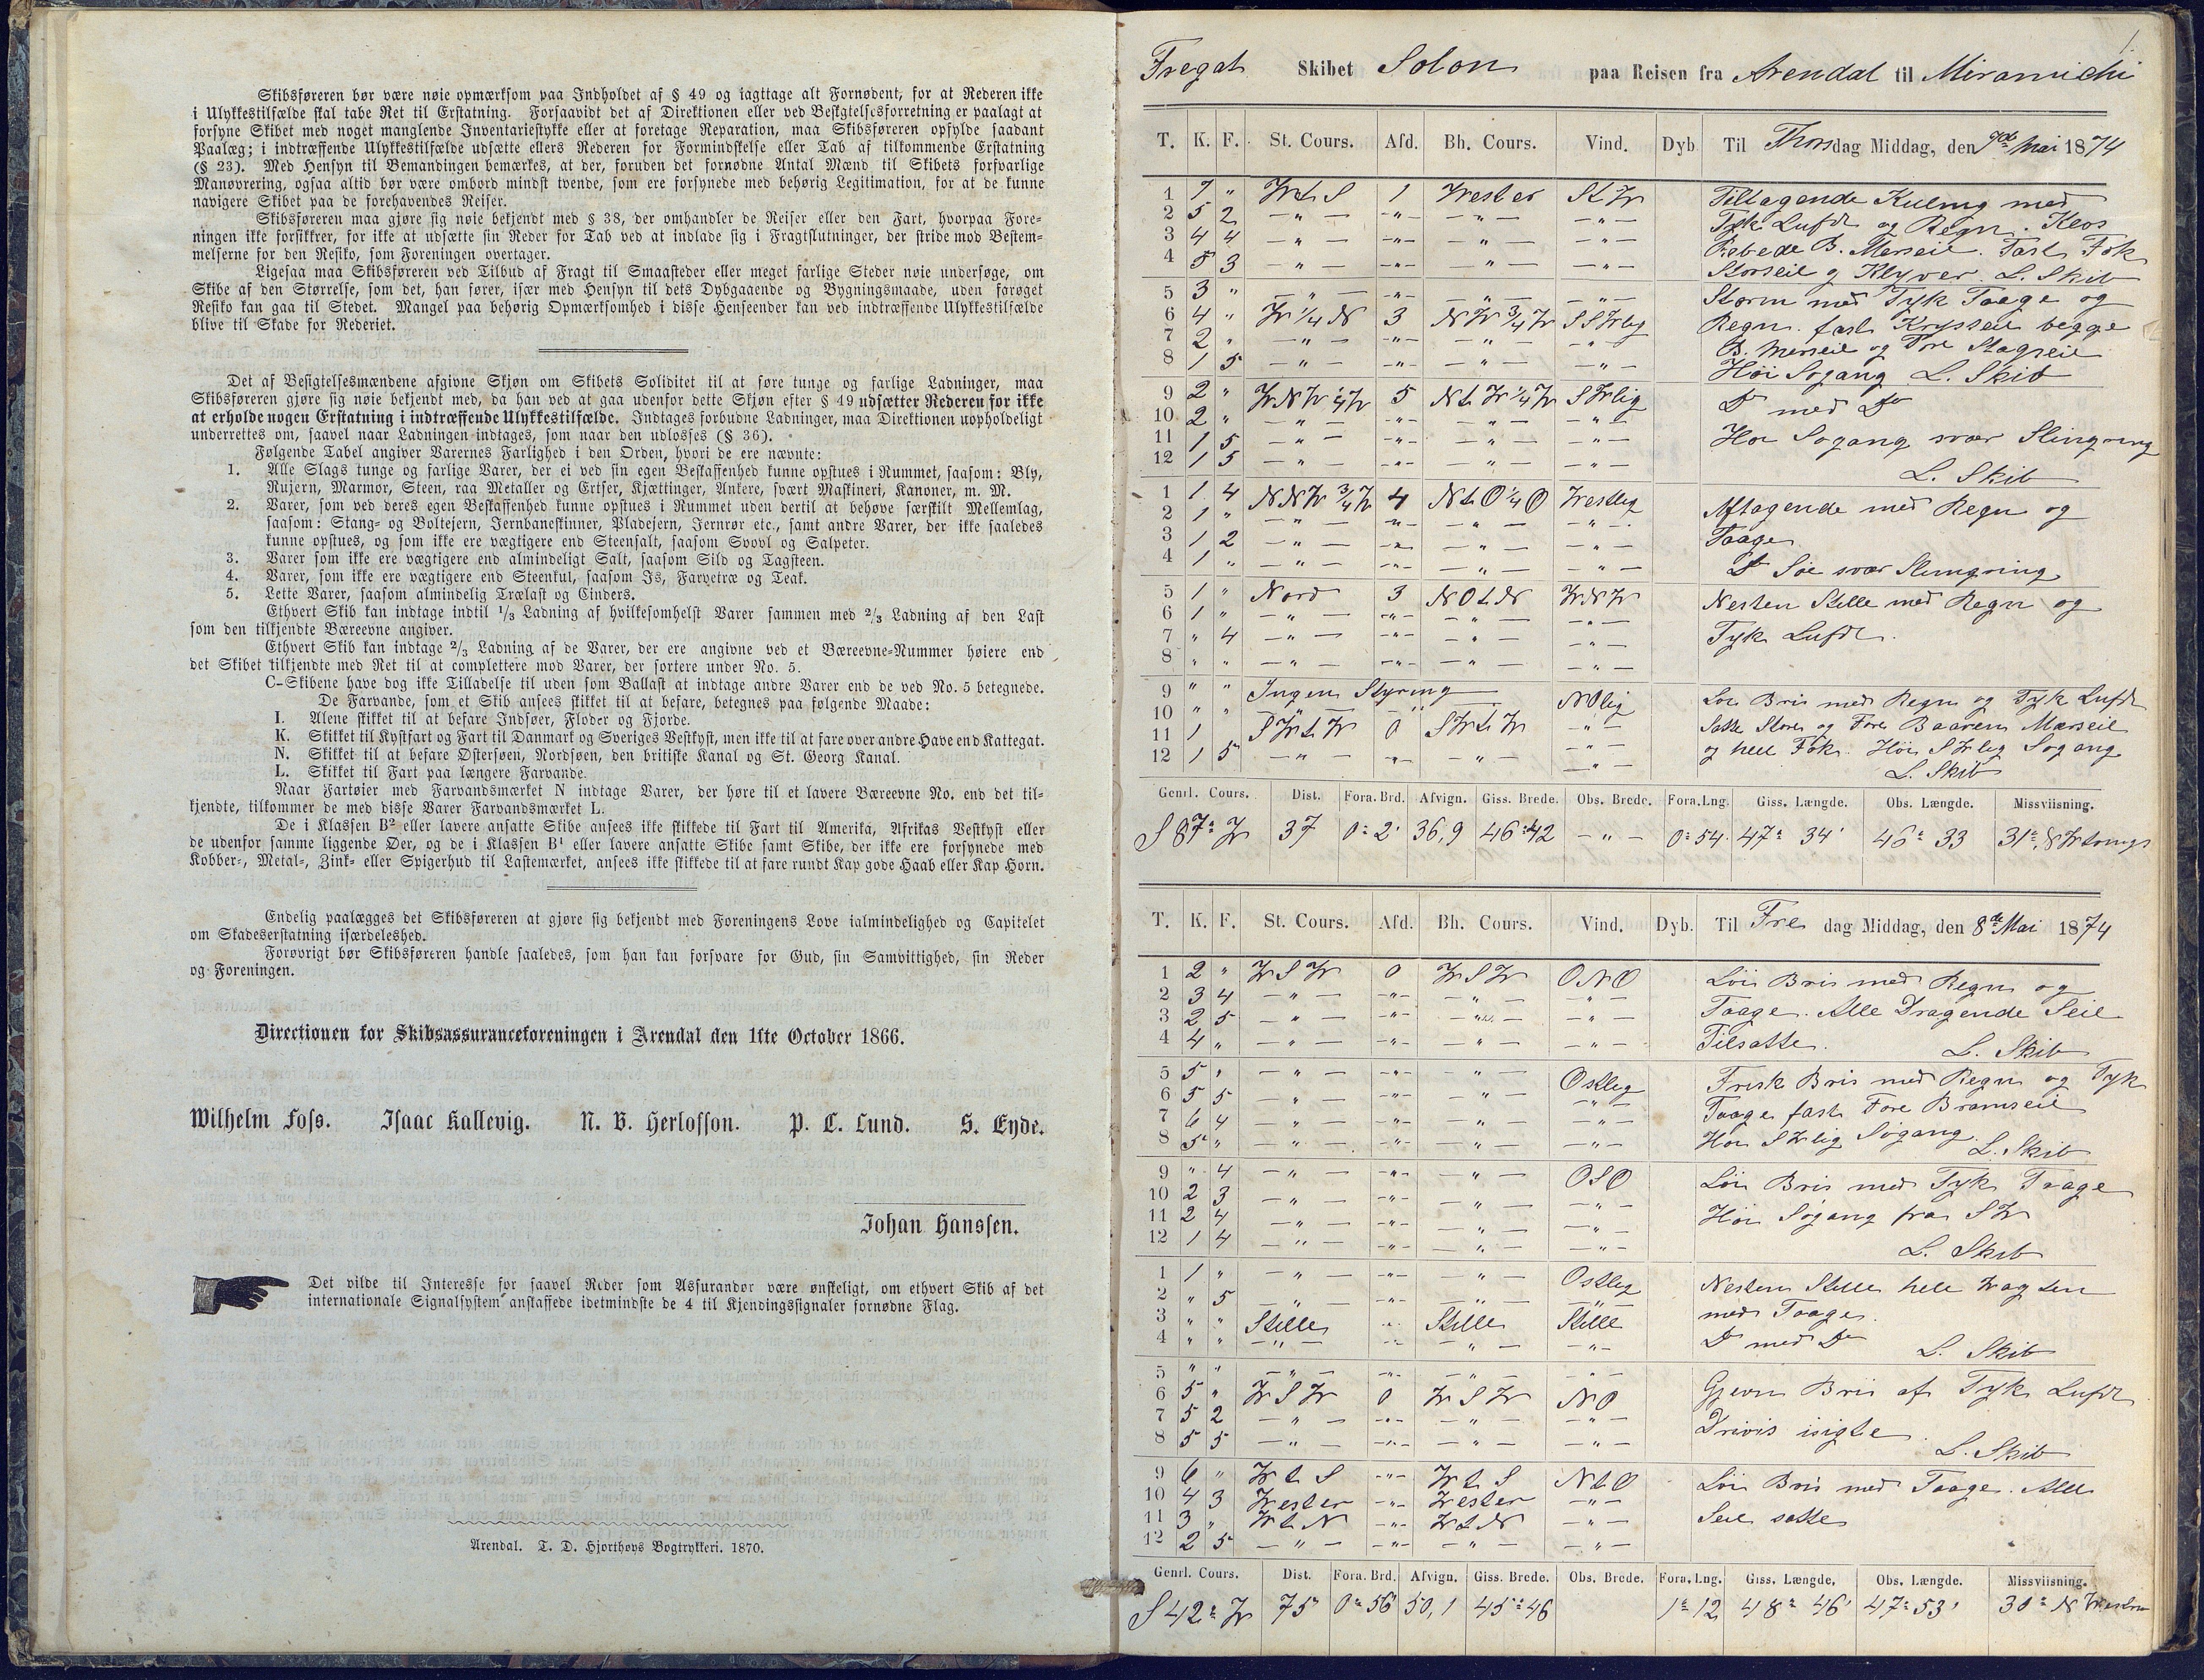 Skibsføreren bør være nøie opmærksom paa Indholdet af § 49 og iagttage alt Fornødent, for at Rederen ikke
i Ulykkestilfælde skal tabe Ret til Erstatning. Forsaavidt det af Direktionen eller ved Besigtelsesforretning er paalagt at
forsyne Skibet med noget manglende Inventariestykke eller at foretage Reparation, maa Skibsføreren opfylde saadant
Paalæg; i indtræffende Ulykkestilfælde udsætte ellers Rederen for Formindskelse eller Tab af tilkommende Erstatning
(§ 23). Med Hensyn til Bemandingen bemærkes, at der, foruden det fornødne Antal Mænd til Skibets forsvarlige
Manøvrering, ogsaa altid bør være ombord mindst tvende, som ere forsynede med behørig Legitimation, for at de kunne
navigere Skibet paa de forehavendes Reiser.
Skibsføreren maa gjøre sig nøie bekjendt med § 38, der omhandler de Reiser eller den Fart, hvorpaa Fore-
ningen ikke forsikkrer, for ikke at udsætte sin Reder for Tab ved at indlade sig i Fragtslutninger, der stride mod Bestem-
melserne for den Resiko, som Foreningen overtager.
Ligesaa maa Skibsføreren ved Tilbud af Fragt til Smaasteder eller meget farlige Steder nøie undersøge, om
Skibe af den Størrelse, som det, han fører, især med Hensyn til dets Dybgaaende og Bygningsmaade, uden forøget
Resiko kan gaa til Stedet. Mangel paa behørig Opmærksomhed i disse Henseender kan ved indtræffende Ulykkestilfælde
blive til Skade for Rederiet.
Det af Besigtelsesmændene afgivne Skjøn om Skibets Soliditet til at føre tunge og farlige Ladninger, maa
Skibsføreren gjøre sig nøie bekjendt med, da han ved at gaa udenfor dette Skjøn efter § 49 udsætter Rederen for ikke
at erholde nogen Erstatning i indtræffende Ulykkestilfælde. Indtages forbudne Ladninger, maa Direktionen uopholdeligt
underrettes om, saavel naar Ladningen indtages, som naar den udlosses (§ 36).
Følgende Tabel angiver Varernes Farlighed i den Orden, hvori de ere nævnte:
1. Alle Slags tunge og farlige Varer, der ei ved sin egen Beskaffenhed kunne opstues i Rummet, saasom: Bly,
Rujern, Marmor, Steen, raa Metaller og Ertser, Kjættinger, Ankere, svært Maskineri, Kanoner, m. M.
2. Varer, som ved deres egen Beskaffenhed kunne opstues i Rummet uden dertil at behøve særskilt Mellemlag,
saasom: Stang- og Boltejern, Jernbaneskinner, Pladejern, Jernrør etc., samt andre Varer, der ikke saaledes
kunne opstues, og som ikke ere vægtigere end Steensalt, saasom Svovl og Salpeter.
3. Varer som ikke ere vægtigere end almindeligt Salt, saasom Sild og Tagsteen.
4. Varer, som ikke ere vægtigere end Steenkul, saasom Is, Farvetræ og Teak.
5. Lette Varer, saasom almindelig Trælast og Cinders.
Ethvert Skib kan indtage indtil 1/3 Ladning af hvilkesomhelst Varer sammen med 2/3 Ladning af den Last
som den tilkjendte Bæreevne angiver.
Ethvert Skib kan indtage 2/3 Ladning af de Varer, der ere angivne ved et Bæreevne-Nummer høiere end
det Skibet tilkjendte med Ret til at complettere mod Varer, der sortere under No. 5.
C-Skibene have dog ikke Tilladelse til uden som Ballast at indtage andre Varer end de ved No. 5 betegnede.
De Farvande, som et Skib ansees skikket til at befare, betegnes paa følgende Maade:
I. Alene skikket til at befare Indsøer, Floder og Fjorde.
K. Skikket til Kystfart og Fart til Danmark og Sveriges Vestkyst, men ikke til at fare over andre Have end Kattegat.
N. Skikket til at befare Østersøen, Nordsøen, den britiske Kanal og St. Georg Kanal.
L. Skikket til Fart paa længere Farvande.
Naar Fartøier med Farvandsmærket N indtage Varer, der høre til et lavere Bæreevne No. end det til-
kjendte, tilkommer de med disse Varer Farvandsmærket L.
De i Klassen B2 eller lavere ansatte Skibe ansees ikke skikkede til Fart til Amerika, Afrikas Vestkyst eller
de udenfor samme liggende Øer, og de i Klassen B1 eller lavere ansatte Skibe samt Skibe, der ikke ere forsynede med
Kobber-, Metal-, Zink- eller Spigerhud til Lastemærket, ansees ikke skikkede til at fare rundt Kap gode Haab eller Kap Horn.
Endelig paalægges det Skibsføreren at gjøre sig bekjendt med Foreningens Love ialmindelighed og Capitelet
om Skadeserstatning isærdeleshed.
Forøvrigt bør Skibsføreren handle saaledes, som han kan forsvare for Gud, sin Samvittighed, sin Reder
og Foreningen.
Directionen for Skibsassuranceforeningen i Arendal den 1ste October 1866.
Wilhelm Foss. Isaac Kallevig. N. B. Herlofson. P. C. Lund. S. Eyde.
Johan Hanssen.
Det vilde til Interesse for saavel Reder som Assurandør være ønskeligt, om ethvert Skib af det
internationale Signalsystem anskaffede idetmindste de 4 til Kjendingssignaler fornødne Flag.
Arendal. T. D. Hjorthøys Bogtrykkeri. 1870.
1.
Fregat Skibet Solon paa Reisen fra Arendal til Miramichi
T. K. F. St. Cours. Afd. Bh. Cours. Vind. Dyb Til Thorsdag Middag, den 7de Mai 1874
1 7 " WtS 1 Wester StW Tiltagende Kuling med
2 5 2 — " — — " — — " — — " — Tyk Luft og Regn. Klos
3 4 4 — " — — " — — " — — " — Rebede B. Merseil. Fast Fok
4 5 3 — " — — " — — " — — " — Storseil og Klyver. L. Skib
5 3 " — " — — " — — " — — " — Storm med Tyk Taage og
6 4 " W 1/4 N 3 NW 3/4 W SSWlig Regn. fast Krysseil begge
7 2 " — " — — " — — " — — " — B. Merseil og Fore Stagseil
8 1 5 — " — — " — — " — — " — Høi Søgang L. Skib
9 2 " WNW 1/4 W 5 NtW 1/4 W SWlig Do med Do
10 2 " — " — — " — — " — — " —
11 1 5 — " — — " — — " — — " — Høi Søgang svær Slingring
12 1 5 — " — — " — — " — — " — L. Skib
1 1 4 NNW 3/4 W 4 NtO 1/4 O Westlig Aftagende med Regn og
2 1 " — " — — " — — " — — " —
3 1 2 — " — — " — — " — — " — Taage
4 1 " — " — — " — — " — — " — Do Søe svær Slingring
5 1 " Nord 3 NOtN WNW Nesten Stille med Regn og
6 1 " — " — — " — — " — — " —
7 " 4 — " — — " — — " — — " — Tyk Luft.
8 " " — " — — " — — " — — " —
9 " " Ingen Styring NOlig Løi Bris med Regn og Tyk Luft
10 " " " " " Satte Store og Fore Baaren Mærseil
11 1 SWtW 0 SWtW — " — og hele Fok. Høi SWlig Søgang
12 1 5 — " — — " — — " — — " — L. Skib
Genrl. Cours. Dist. Fora. Brd. Afvign. Giss. Brede. Obs. Brede. Fora. Lng. Giss. Længde. Obs. Længde. Missviisning.
S 87° W 37 0° 2' 36,9 46° 42 — " — 0° 54 47° 34' 46° 33 31°
T. K. F. St. Cours. Afd. Bh. Cours. Vind. Dyb. Til Fredag Middag, den 8de Mai 1874
1 2 " WSW 0 WSW ONO Løi Bris med Regn og
2 3 4 — " — — " — — " — — " — Taage. Alle Dragende Seil
3 2 5 — " — — " — — " — — " —
4 4 " — " — — " — — " — — " — Tilsatte. L. Skib
5 5 " — " — — " — — " — Ostlig Frisk Bris med Regn og Tyk
6 5 5 — " — — " — — " — — " — Taage fast Fore Bramseil
7 6 4 — " — — " — — " — — " —
8 5 " — " — — " — — " — — " — Høi SWlig Søgang. L. Skib
9 " 4 — " — — " — — " — OSO Løi Bris med Tyk Taage
10 2 3 — " — — " — — " — — " —
11 2 4 — " — — " — — " — — " — Høi Søgang fra SW
12 1 4 — " — — " — — " — — " — L. Skib
1 1 " — " — — " — — " — Ostlig Nesten Stille hele Wagten
2 " 5 — " — — " — — " — — " — med Taage.
3 " " Stille " Stille Stille
4 " " — " — — " — — " — — " — Do med Do L. Skib
5 " " — " — — " — — " — — " —
6 5 " WSW 0 WSW NO Gjevn Bris af Tyk Luft
7 5 2 — " — — " — — " — — " — Drivis isigte
8 5 5 — " — — " — — " — — " — L. Skib
9 6 " WtS — " — WtS NtO Løi Bris med Taage. Alle
10 4 3 Wester — " — Wester — " —
11 3 " WtN — " — WtN — " — Seil satte
12 2 5 — " — — " — — " — — " —
Genrl. Cours. Dist. Fora. Brd. Afvign. Giss. Brede. Obs. Brede. Fora. Lng. Giss. Længde. Obs. Længde. Missviisning.
S 42° W 75 0° 56' 50,1 45° 46 1° 12 48° 46' 47° 53' 30°